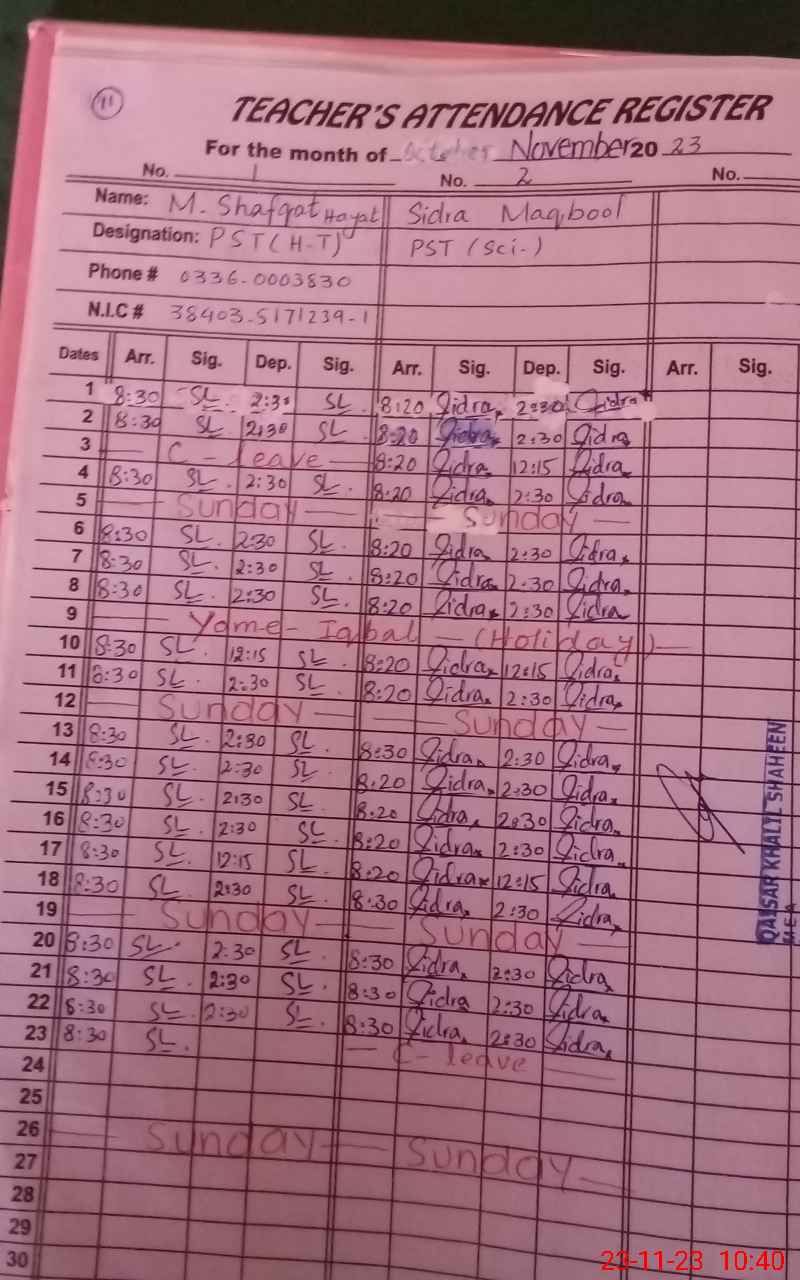 11
TEACHER'S ATTENDANCE REGISTER
For the month of October November 20 23
No. 1 No. 2 No.
Name: M. Shafqat Hayat Sidra Maqbool
Designation: PST (H-T) PST (Sci-)
Phone # 0336-0003830
N.I.C # 38403-5171239-1
Dates Arr. Sig. Dep. Sig. Arr. Sig. Dep. Sig. Arr. Sig.
1 8:30 SL. 2:30 SL. 8:20 Sidra 2:30 Sidra
2 8:30 SL 2:30 SL. 8:20 Sidra 2:30 Sidra
3 C-leave 8:20 Sidra 12:15 Sidra
4 8:30 SL. 2:30 SL. 8:20 Sidra 2:30 Sidra
5 Sunday Sunday
6 8:30 SL. 2:30 SL. 8:20 Sidra 2:30 Sidra
7 8:30 SL. 2:30 SL. 8:20 Sidra 2:30 Sidra
8 8:30 SL. 2:30 SL. 8:20 Sidra 2:30 Sidra
9 Yome-Iqbal (Holiday)
10 8:30 SL. 12:15 SL. 8:20 Sidra 12:15 Sidra
11 8:30 SL. 2:30 SL. 8:20 Sidra 2:30 Sidra
12 Sunday Sunday
13 8:30 SL. 2:30 SL. 8:30 Sidra 2:30 Sidra
14 8:30 SL. 2:30 SL. 8:20 Sidra 2:30 Sidra
15 8:30 SL. 2:30 SL. 8:20 Sidra 2:30 Sidra
16 8:30 SL. 2:30 SL. 8:20 Sidra 2:30 Sidra
17 8:30 SL. 12:15 SL. 8:20 Sidra 12:15 Sidra
18 8:30 SL. 2:30 SL. 8:30 Sidra 2:30 Sidra
19 Sunday Sunday
20 8:30 SL. 2:30 SL. 8:30 Sidra 2:30 Sidra
21 8:30 SL. 2:30 SL. 8:30 Sidra 2:30 Sidra
22 8:30 SL. 2:30 SL. 8:30 Sidra 2:30 Sidra
23 8:30 SL. C-leave
24
25
26 Sunday Sunday
27
28
29
30
QAISAR KHALIL SHAHEEN
MEA
23-11-23 10:40